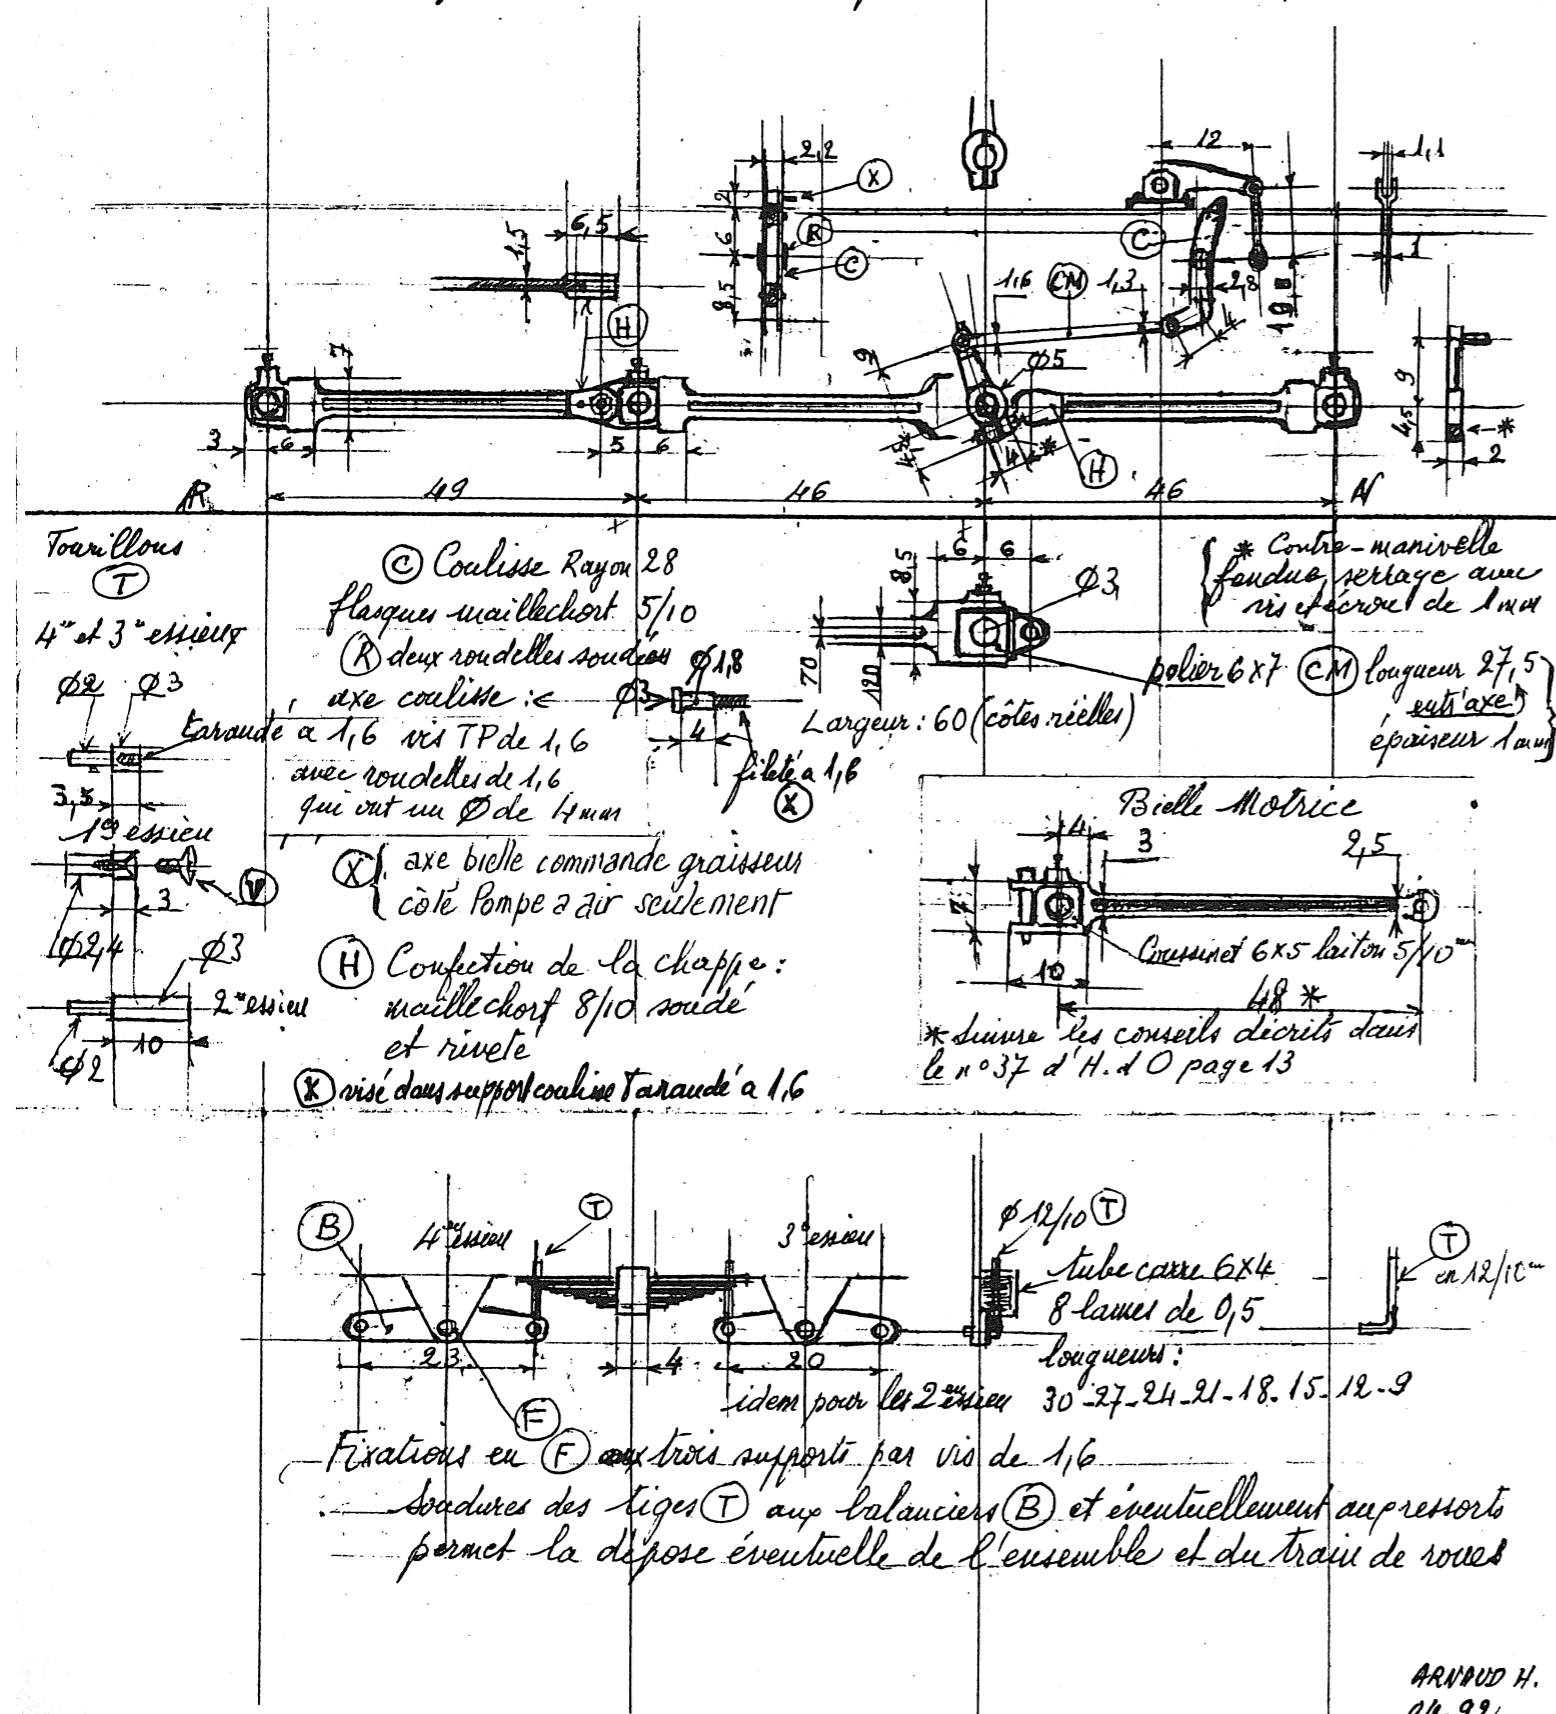 2,2
X
12
1,1
2
6
8,5
R
C
6,5
1,5
H
C
1
1,6
CM
1,3
2,8
4
19
7
9
Ø5
3
6
5
6
4,5
4
*
H
9
4,5
*
2
AR
49
46
46
AV
Tourillons
T
4e et 3e essieux
Ø2
Ø3
3,5
1er essieu
3
V
Ø2,4
Ø3
2me essieu
10
Ø2
C Coulisse Rayon 28
flasques maillechort 5/10
R deux rondelles soudées
axe coulisse :
Ø3
Ø1,8
4
taraudé à 1,6 vis TP de 1,6
avec rondelles de 1,6
qui ont un Ø de 4 mm
fileté à 1,6
X
X axe bielle commande graisseur
côté Pompe a air seulement
H Confection de la chappe :
maillechort 8/10 soudé
et riveté
X visé dans support coulisse Taraudé a 1,6
6
6
8,5
Ø3
70
120
Largeur : 60 (côtes réelles)
* Contre-manivelle
fendue, serrage avec
vis et écrou de 1 mm
palier 6x7
CM longueur 27,5
entr'axe
épaiseur 1 mm
Bielle Motrice
4
3
2,5
7
Coussinet 6x5 laiton 5/10me
10
48 *
* Suivre les conseils décrits dans
le n° 37 d'H.d O page 13
B
4me essieu
T
3e essieu
Ø 12/10 T
tube carre 6x4
8 lames de 0,5
T
en 12/10me
23
4
20
longueurs :
idem pour les 2me essieu
30-27-24-21-18-15-12-9
F
Fixations en F aux trois supports par vis de 1,6
Soudures des tiges T aux balanciers B et éventuellement aux ressorts
permet la dépose éventuelle de l'ensemble et du train de roues
ARNAUD H.